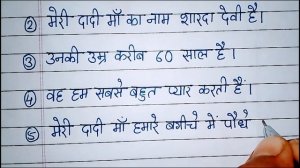 ② मेरी दादी माँ का नाम शारदा देवी है।
③ उनकी उम्र करीब 60 साल है।
④ वह हम सबसे बहुत प्यार करती हैं।
⑤ मेरी दादी माँ हमारे बगीचे में पौधे